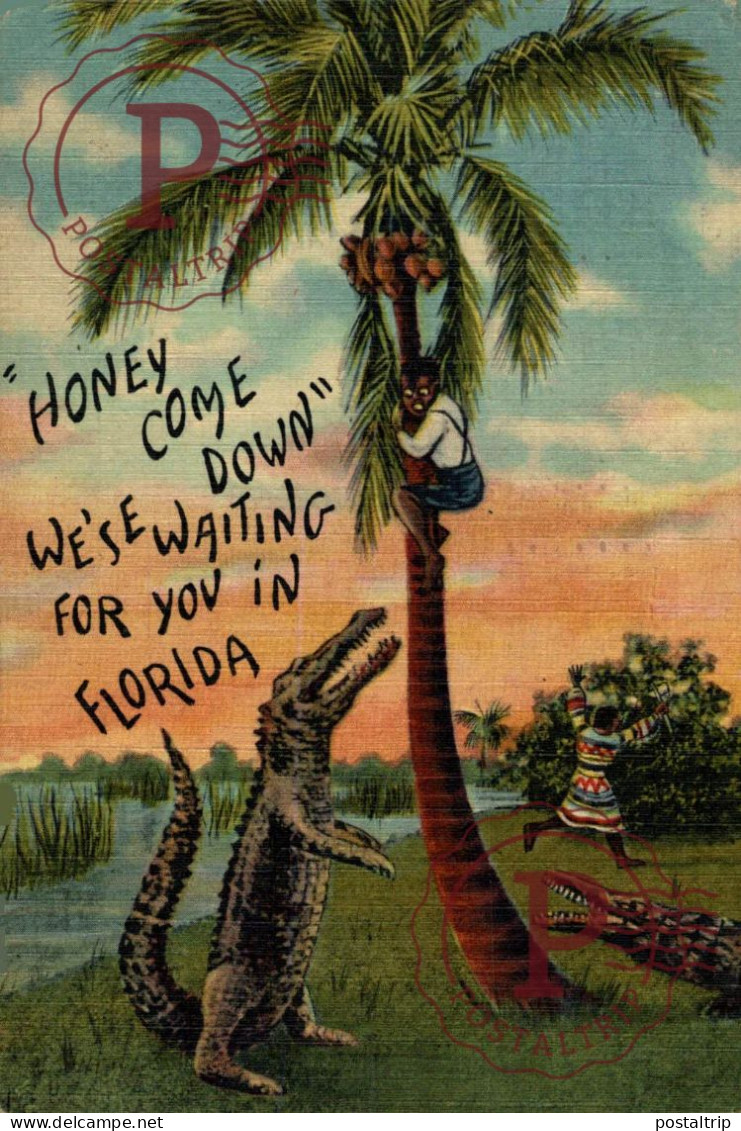 P
POSTALTRIP
"HONEY
COME
DOWN"
WE'SE WAITING
FOR YOU IN
FLORIDA
P
POSTALTRIP
www.delcampe.net
postaltrip